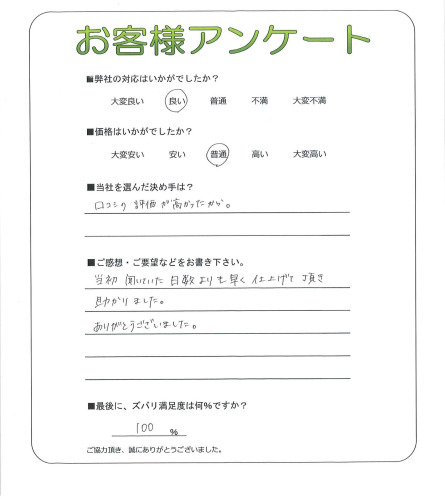 お客様アンケート
■弊社の対応はいかがでしたか？
大変良い 良い 普通 不満 大変不満
■価格はいかがでしたか？
大変安い 安い 普通 高い 大変高い
■当社を選んだ決め手は？
口コミの評価が高かったから。
■ご感想・ご要望などをお書き下さい。
当初聞いていた日数よりも早く仕上げて頂き
助かりました。
ありがとうございました。
■最後に、ズバリ満足度は何%ですか？
100 %
ご協力頂き、誠にありがとうございました。